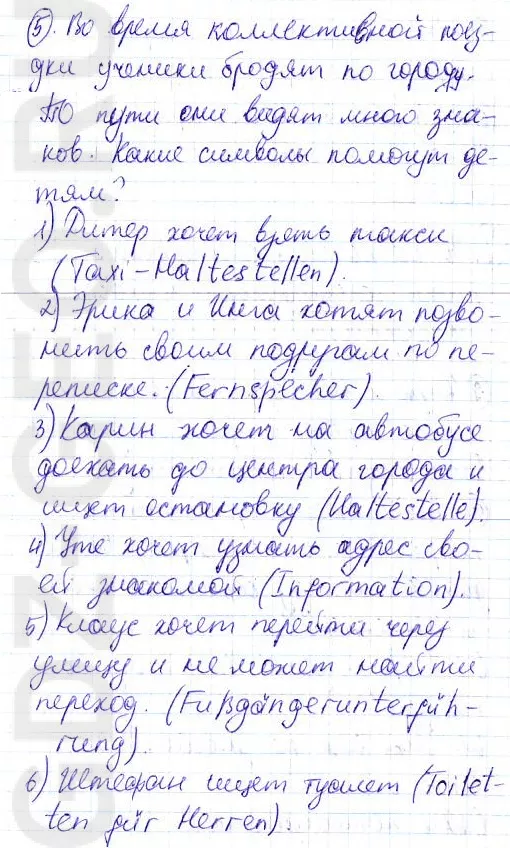 5. Во время коллективной поез-
дки ученики бродят по городу.
По пути они видят много зна-
ков. Какие символы помогут де-
тям?
1) Дитер хочет взять такси
(Taxi-Haltestellen).
2) Эрика и Инга хотят позво-
нить своим подругам по пе-
реписке. (Fernspecher).
3) Карин хочет на автобусе
доехать до центра города и
ищет остановку (Haltestelle).
4) Уте хочет узнать адрес сво-
ей знакомой (Information).
5) Клаус хочет перейти через
улицу и не может найти
переход. (Fußgängerunterfüh-
rung).
6) Штефан ищет туалет (Toilet-
ten für Herren).
GDZ-GEO.RU